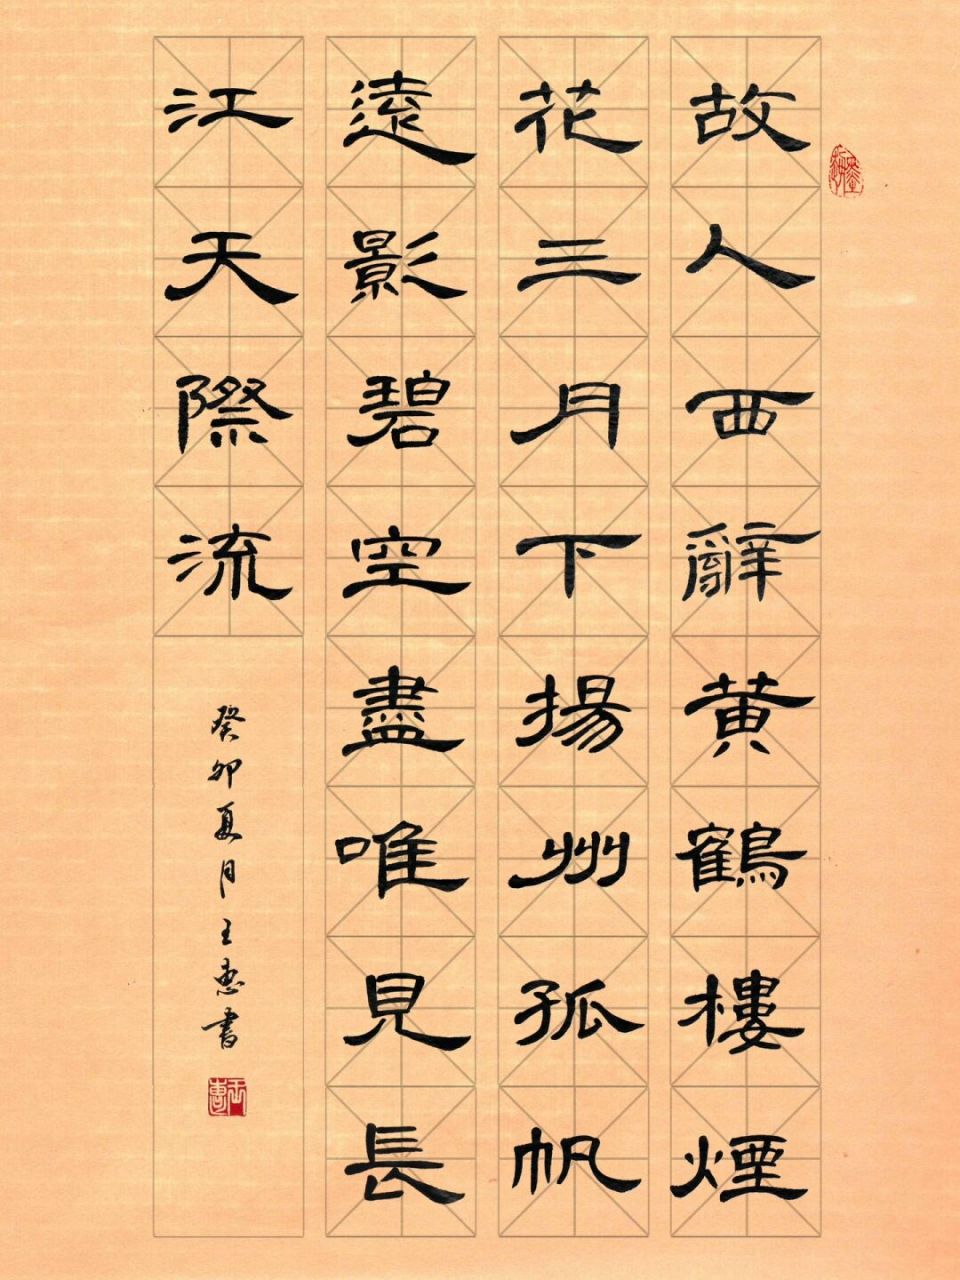 故人西辭黄鶴樓煙
花三月下揚州孤帆
遠影碧空盡唯見長
江天際流
癸卯夏月王惠書